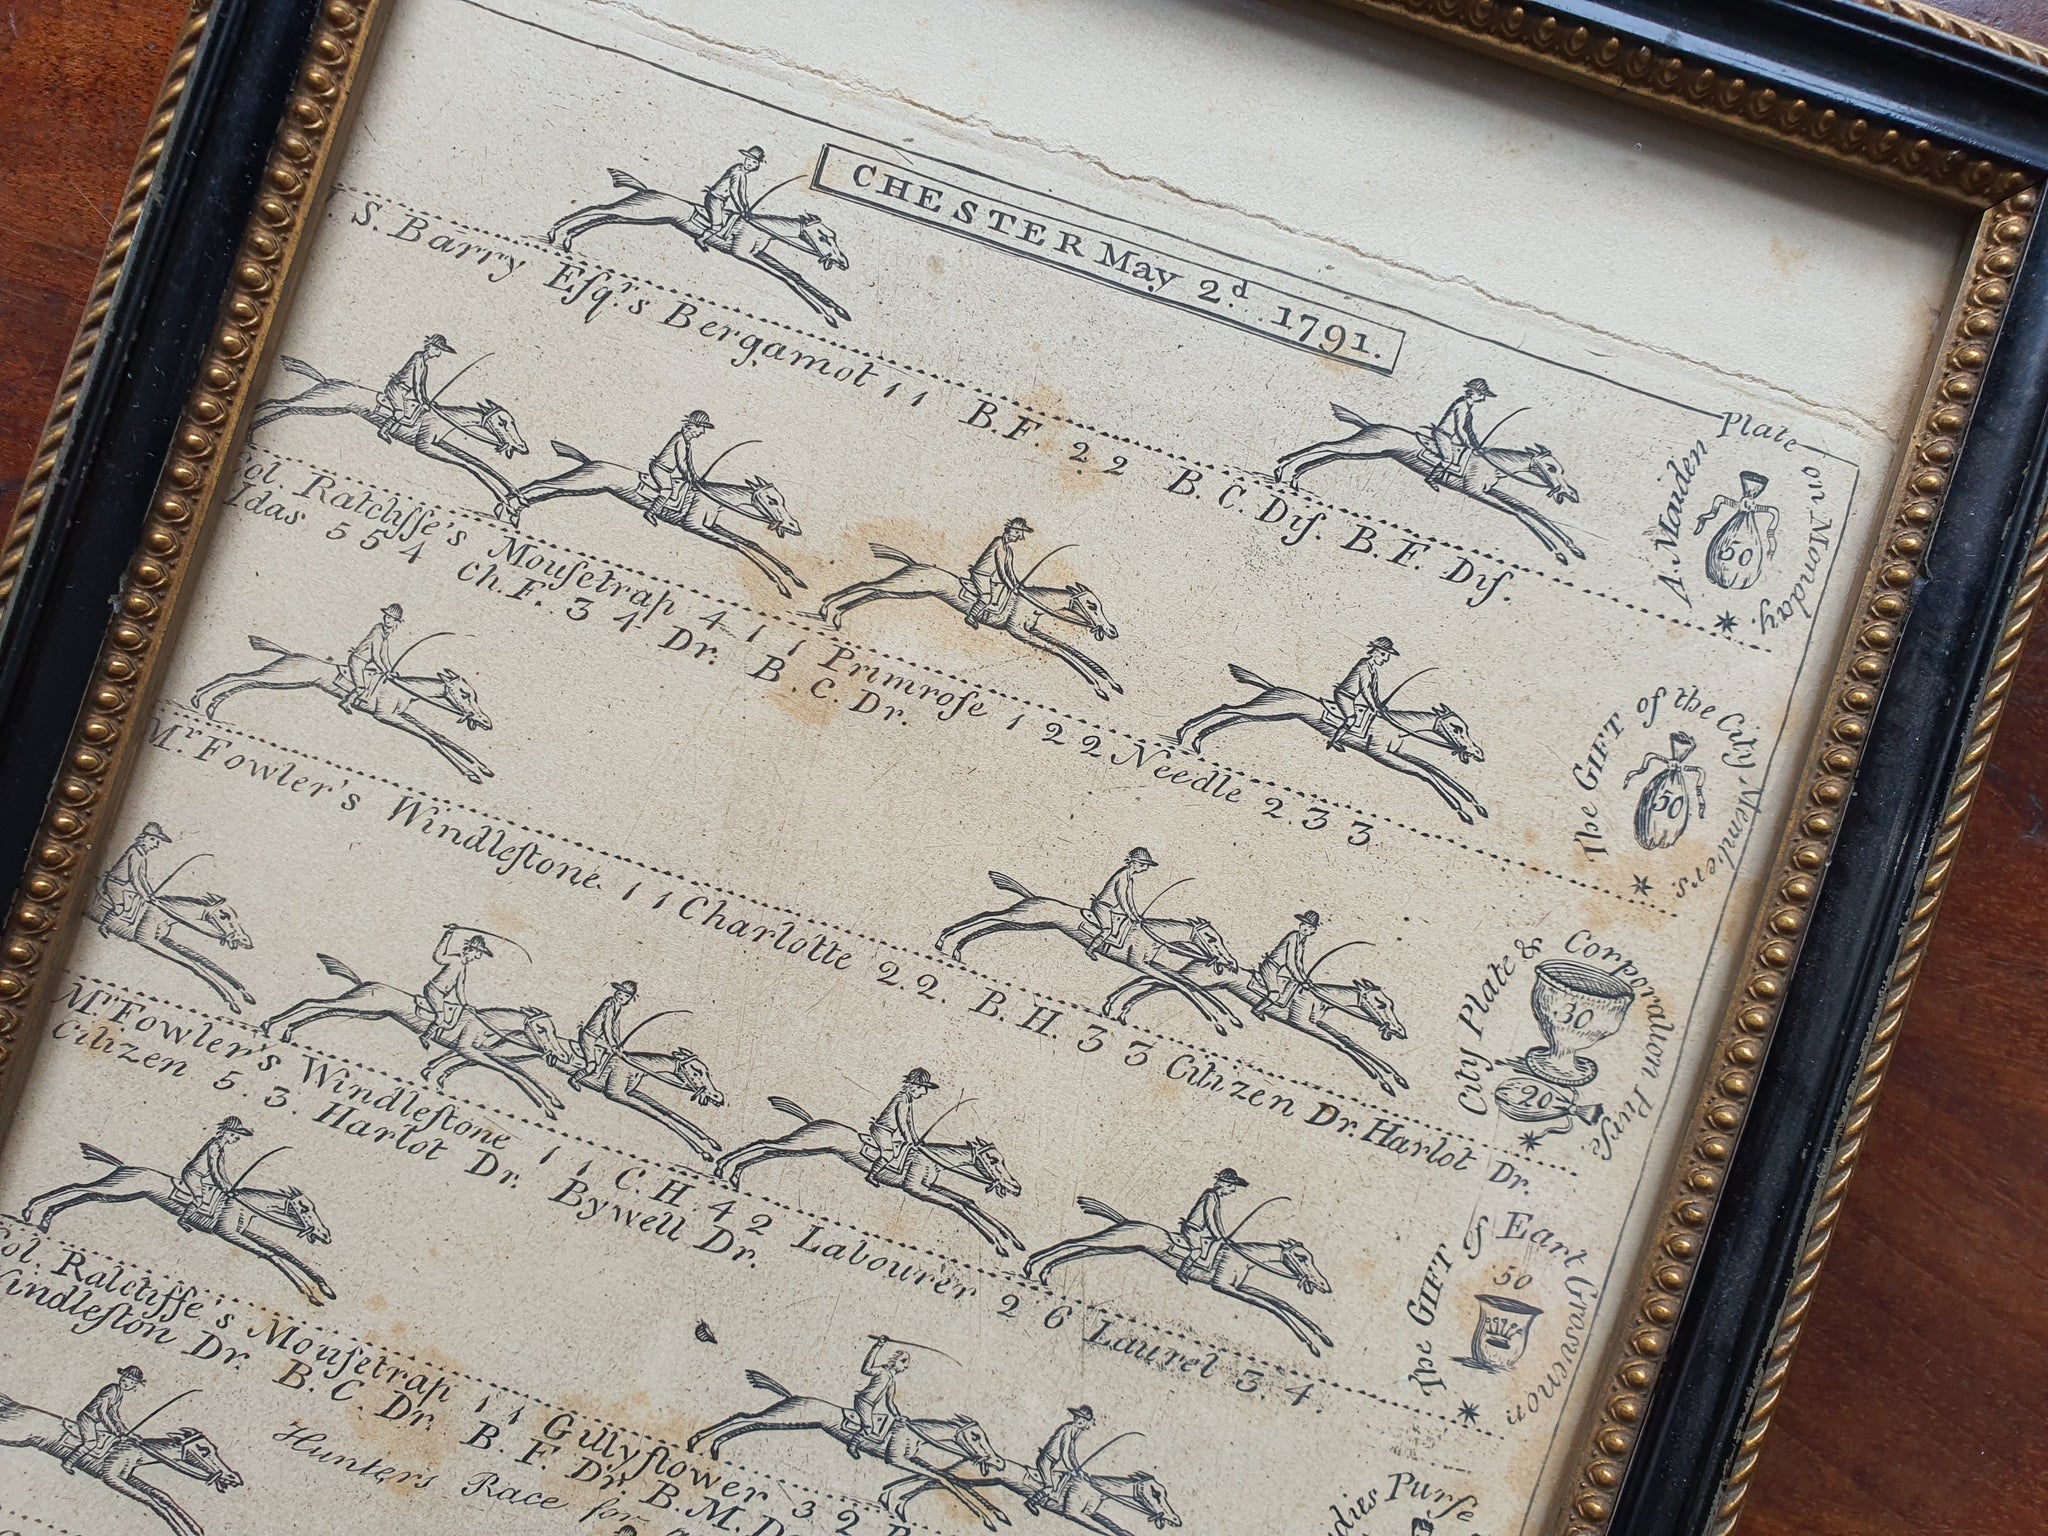 CHESTER May 2.d 1791.
S. Barry Eſq.rs Bergamot 1 1 B.F. 2 2 B.C. Diſ. B.F. Diſ.
A Maiden Plate on Monday.
50
Col. Ratcliffe's Mouſetrap 4 1 1 Primroſe 1 2 2 Needle 2.3 3
Idas 5 5 4 ch.F. 3 4 Dr. B.C. Dr.
The GIFT of the City Members.
50
Mr Fowler's Windleſtone 1 1 Charlotte 2.2. B.H. 3 3 Citizen Dr. Harlot Dr.
City Plate & Corporation Purſe.
30
20
Mr. Fowler's Windleſtone 1 1 C.H. 4 2 Labourer 2 6 Laurel 3 4
Citizen 5.3. Harlot Dr. Bywell Dr.
The GIFT of Earl Grosvenor
50
Col. Ratcliffe's Mouſetrap 1 1 Gillyflower 3 2
Windleſton Dr. B.C. Dr. B.F. Dr. B.M. D
Ladies Purſe
Hunters Race for